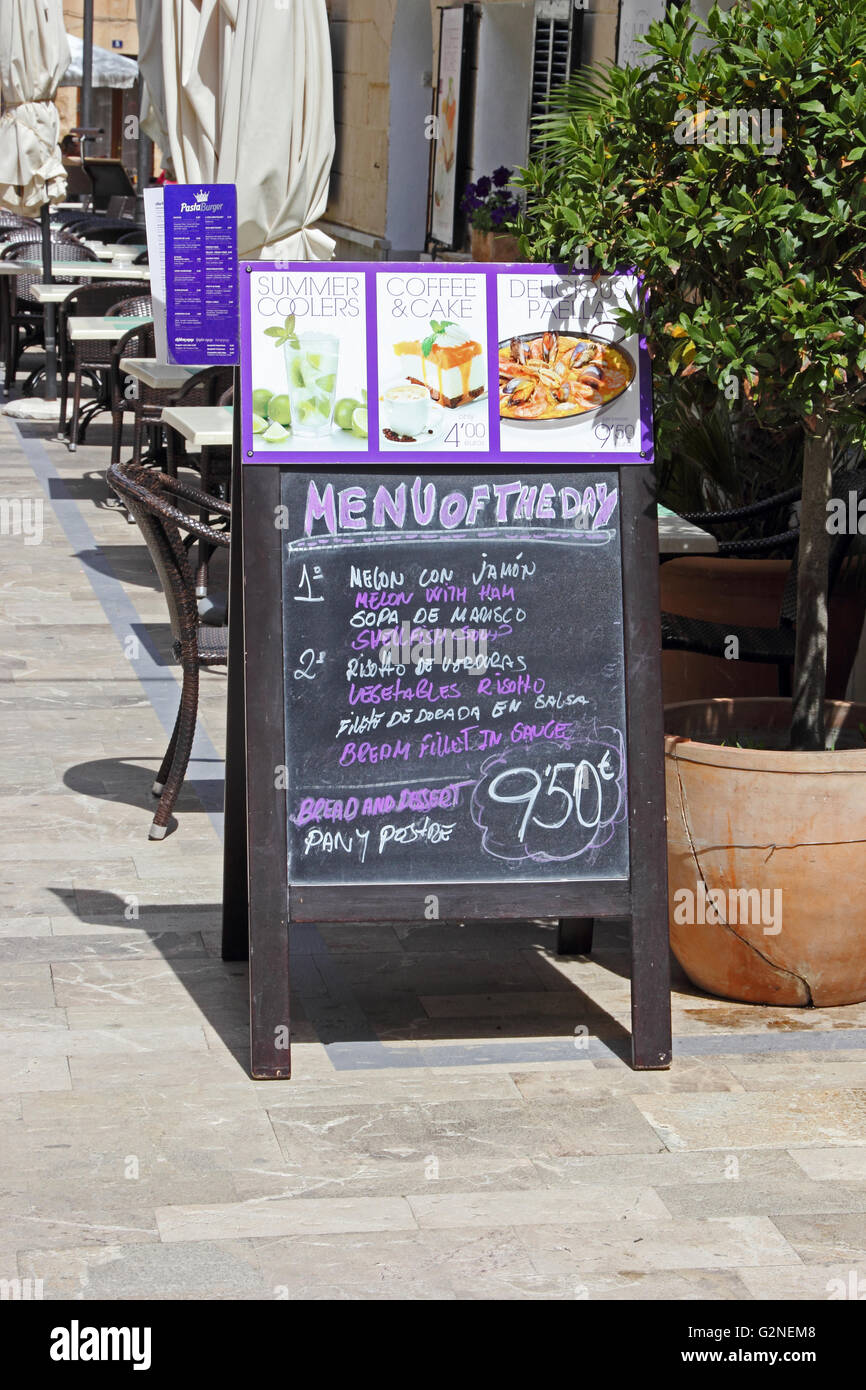 PastaBurger
SUMMER
COOLERS
COFFEE
& CAKE
4'00
euros
DELICIOUS
PAELLA
9'50
MENU OF THE DAY
1º MELON CON JAMÓN
MELON WITH HAM
SOPA DE MARISCO
SHELLFISH SOUP
2º RISOTTO DE VERDURAS
VEGETABLES RISOTTO
FILETE DE DORADA EN SALSA
BREAM FILLET IN SAUCE
BREAD AND DESSERT
PAN Y POSTRE
9'50€
alamy
Image ID: G2NEM8
www.alamy.com